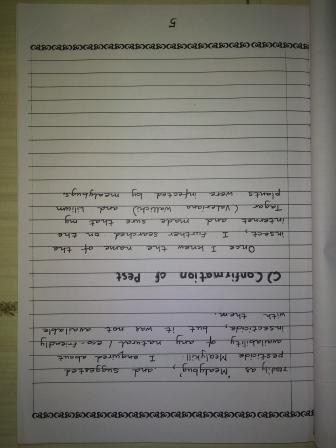 readily as 'Mealybug', and suggested
pesticide 'Mealykill'. I enquired about
availability of any natural / eco-friendly
insecticide, but it was not available
with them.
C) Confirmation of Pest
Once I knew the name of the
insect, I further searched on the
internet and made sure that my
Tagar (Valeriana Wallichi) and Lilium
plants were infected by mealybugs.
5